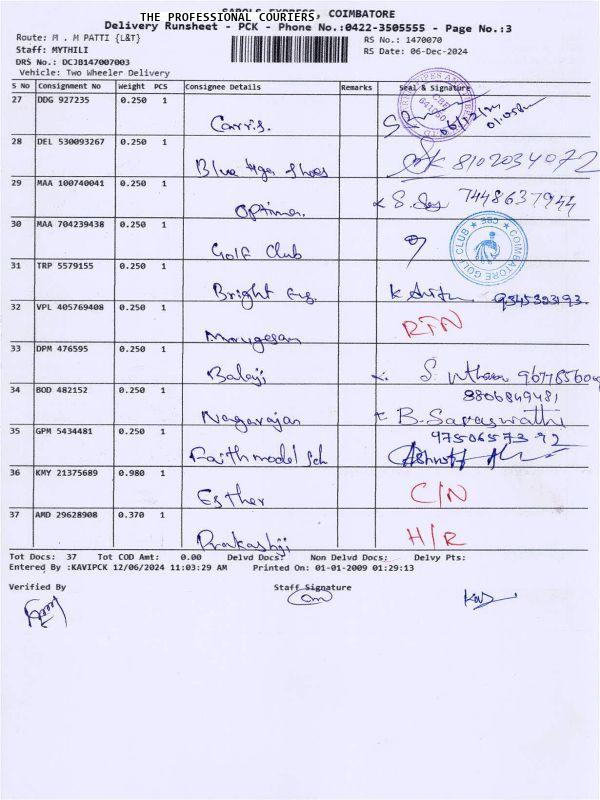 SABOLS EXPRESS, COIMBATORE
THE PROFESSIONAL COURIERS
Delivery Runsheet - PCK - Phone No.:0422-3505555 - Page No.:3
Route: M . M PATTI {L&T}
RS No.: 1470070
Staff: MYTHILI
RS Date: 06-Dec-2024
DRS No.: DCJB147007003
Vehicle: Two Wheeler Delivery
S No Consignment No Weight PCS Consignee Details Remarks Seal & Signature
27 DDG 927235 0.250 1
Carris. 06/12/24 01:05
28 DEL 530093267 0.250 1
Blue tiger Shoes 8102034072
29 MAA 100740041 0.250 1
Optima. 7448637944
30 MAA 704239438 0.250 1
Golf Club
COIMBATORE GOLF CLUB CBE
31 TRP 5579155 0.250 1
Bright Eng. 9345323193.
32 VPL 405769408 0.250 1
Murugesan RTN
33 DPM 476595 0.250 1
Balaji
34 BOD 482152 0.250 1
8806849481
Nagarajan B. Saraswathi
35 GPM 5434481 0.250 1
9750657392
Faith model Sch
36 KMY 21375689 0.980 1
Esther C/N
37 AMD 29628908 0.370 1
Prakashji H/R
Tot Docs: 37 Tot COD Amt: 0.00 Delvd Docs: Non Delvd Docs: Delvy Pts:
Entered By :KAVIPCK 12/06/2024 11:03:29 AM Printed On: 01-01-2009 01:29:13
Verified By Staff Signature